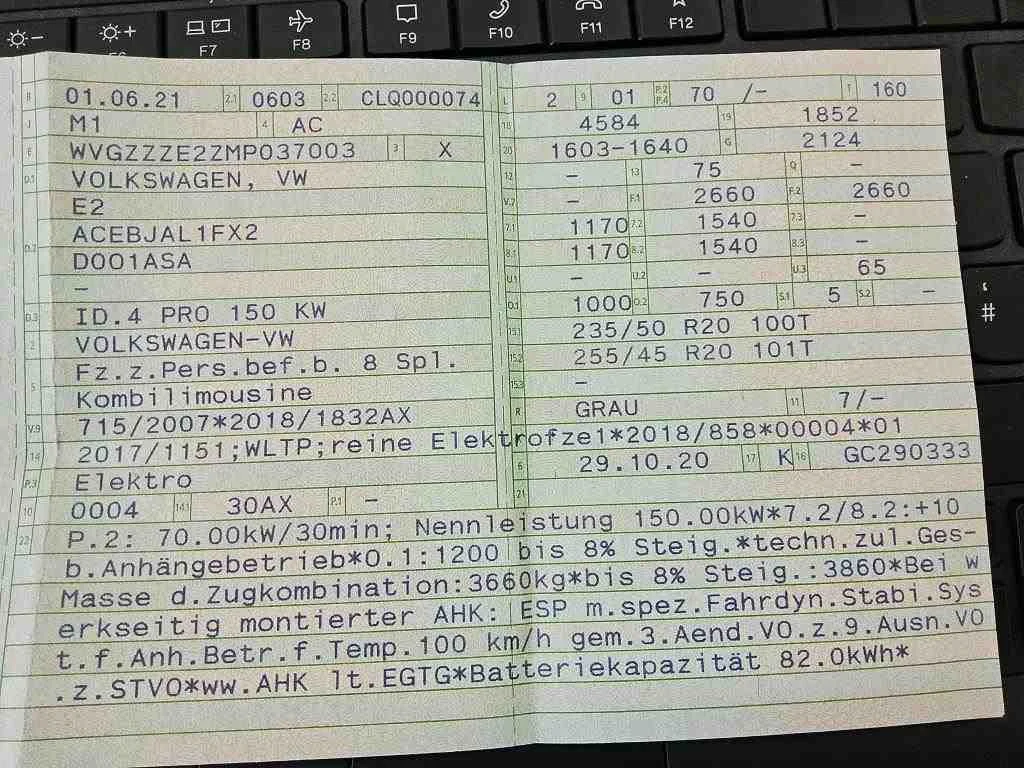 F7
F8
F9
F10
F11
F12
B 01.06.21 2.1 0603 2.2 CLQ000074
J M1 4 AC
E WVGZZZE2ZMP037003 3 X
D.1 VOLKSWAGEN, VW
E2
D.2 ACEBJAL1FX2
D001ASA
–
D.3 ID.4 PRO 150 KW
2 VOLKSWAGEN-VW
5 Fz.z.Pers.bef.b. 8 Spl.
Kombilimousine
V.9 715/2007*2018/1832AX
14 2017/1151;WLTP;reine Elektrofze1*2018/858*00004*01
P.3 Elektro
10 0004 14.1 30AX P.1 –
L 2 9 01 P.2 P.4 70 /– T 160
18 4584 19 1852
20 1603-1640 G 2124
12 – 13 75 Q –
V.7 – F.1 2660 F.2 2660
7.1 1170 7.2 1540 7.3 –
8.1 1170 8.2 1540 8.3 –
U.1 – U.2 – U.3 65
O.1 1000 O.2 750 S.1 5 S.2 –
15.1 235/50 R20 100T
15.2 255/45 R20 101T
15.3 –
R GRAU 11 7/–
6 29.10.20 17 K 16 GC290333
21
22 P.2: 70.00kW/30min; Nennleistung 150.00kW*7.2/8.2:+10
b.Anhängebetrieb*0.1:1200 bis 8% Steig.*techn.zul.Ges-
Masse d.Zugkombination:3660kg*bis 8% Steig.:3860*Bei w
erkseitig montierter AHK: ESP m.spez.Fahrdyn.Stabi.Sys
t.f.Anh.Betr.f.Temp.100 km/h gem.3.Aend.VO.z.9.Ausn.VO
.z.STVO*ww.AHK lt.EGTG*Batteriekapazität 82.0kWh*
#